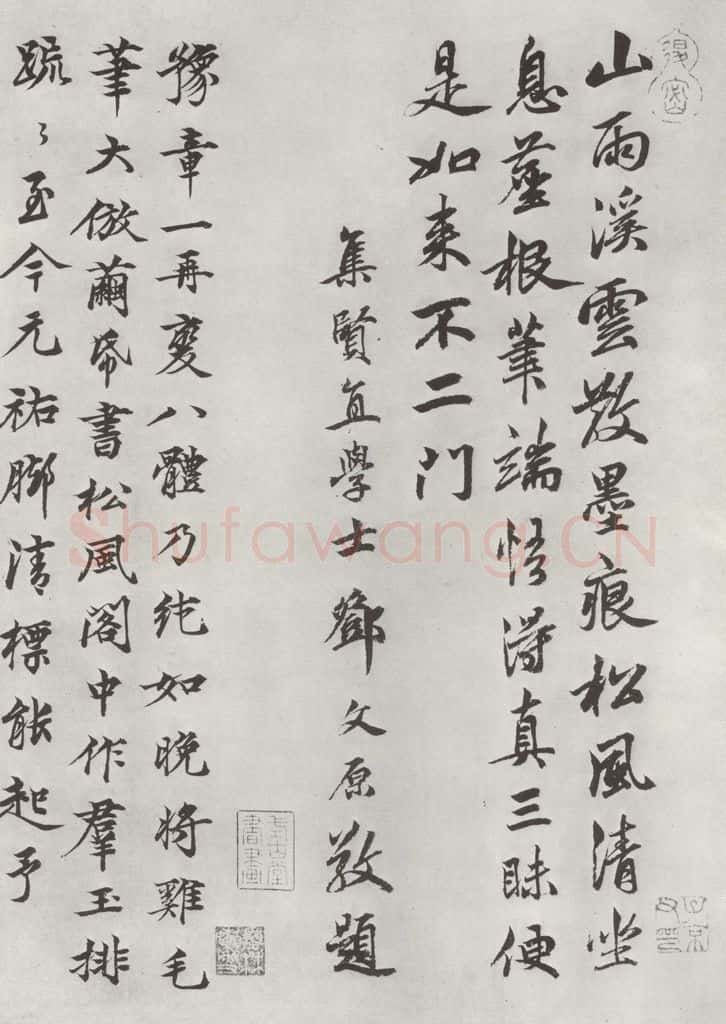 山雨溪雲散墨痕松風清坐
息塵根筆端悟得真三昧便
是如来不二門
集賢直學士鄧文原敬題
豫章一再變八體乃純如晚將雞毛
筆大倣繭帋書松風閣中作羣玉排
疏〻至今元祐脚清標能起予
Shufawang.CN